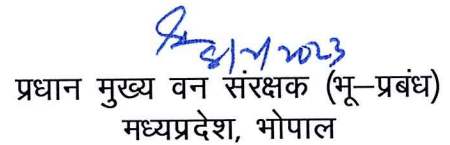 प्रधान मुख्य वन संरक्षक (भू–प्रबंध)
मध्यप्रदेश, भोपाल